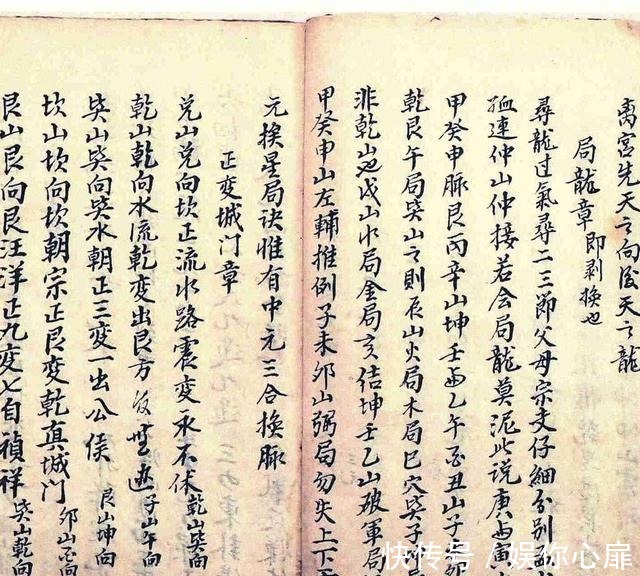 离宫先天之向后天之龍
局龍章即剥換也
尋龍过氣尋二三節父母宗支仔細分别
連仲山仲接若会局龍莫泥此说庚
甲癸申脉艮丙辛山坤壬乙午丑山子
乾艮午局巽山之則辰山火局木局巳穴巽子局
非乾山也戌山水局金局亥结坤壬乙山破軍局
甲癸申山左輔推例子未卯山弼局勿失上下
元换星局诀惟有中元三合换脉
正变城门章
兑山兑向坎正流水路震变永不休 乾山巽向
乾山乾向水流乾变出艮方 子山午向
巽山巽向巽水朝正三变一出公侯 艮山坤向
坎山坎向坎朝宗正艮变乾真城门
艮山艮向艮汪洋正九变七自祯祥 巽山乾向
快传号 / 娱你心扉